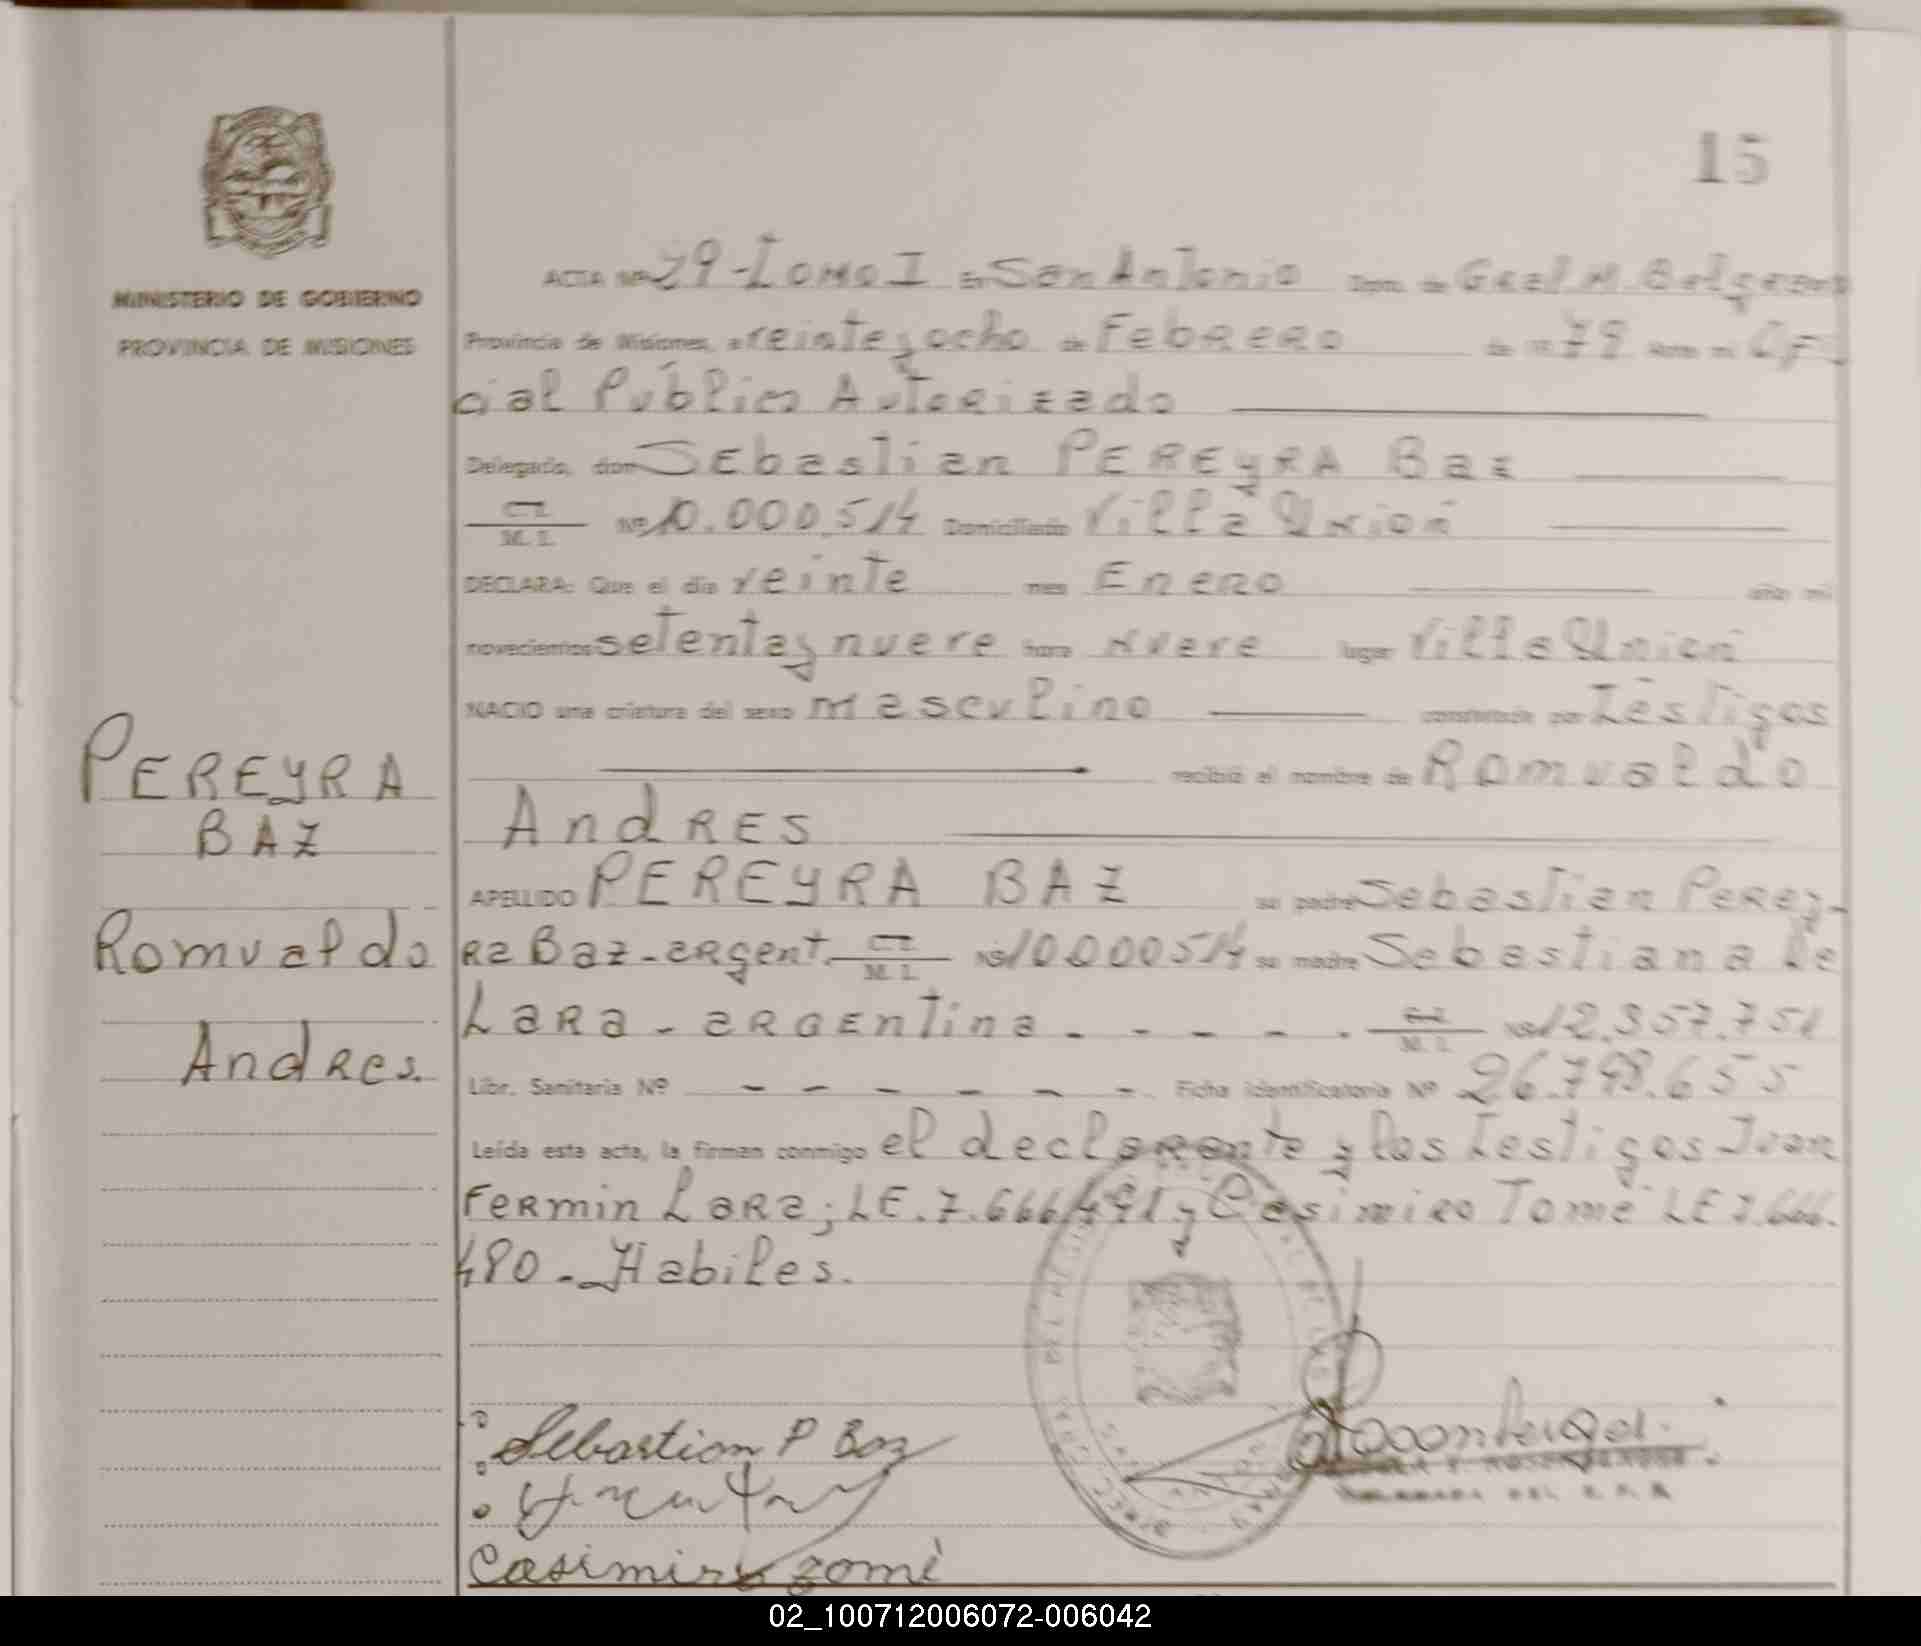 15
MINISTERIO DE GOBIERNO
PROVINCIA DE MISIONES
ACTA Nº 29-Tomo I En San Antonio Dpto. de Gral M. Belgrano
Provincia de Misiones, a veinte y ocho de Febrero de 19 79 Ante mí Ofi
cial Público Autorizado
Delegado, don Sebastian PEREYRA Baz
C.I.
M. I. Nº 10.000.514 Domiciliado Villa Unión
DECLARA: Que el día veinte mes Enero año mil
novecientos setenta y nueve hora Nueve lugar Villa Unión
NACIO una criatura del sexo masculino constatada por Testigos
recibió el nombre de Romualdo
Andres
APELLIDO PEREYRA BAZ su padre Sebastian Perey-
ra Baz-argent. C.I.
M. I. Nº 10000514 su madre Sebastiana De
Lara - argentina - - - - - C.I.
M. I. Nº 12.357.751
Libr. Sanitaria Nº - - - - - - Ficha identificatoria Nº 26.798.655
Leída esta acta, la firman conmigo el declarante y los Testigos Juan
Fermin Lara; LE.7.666.491 y Casimiro Tomé LE 7.666.
480 - Habiles.
PEREYRA
BAZ
Romualdo
Andres.
Sebastian P Baz
Casimiro Zomé
02_100712006072-006042